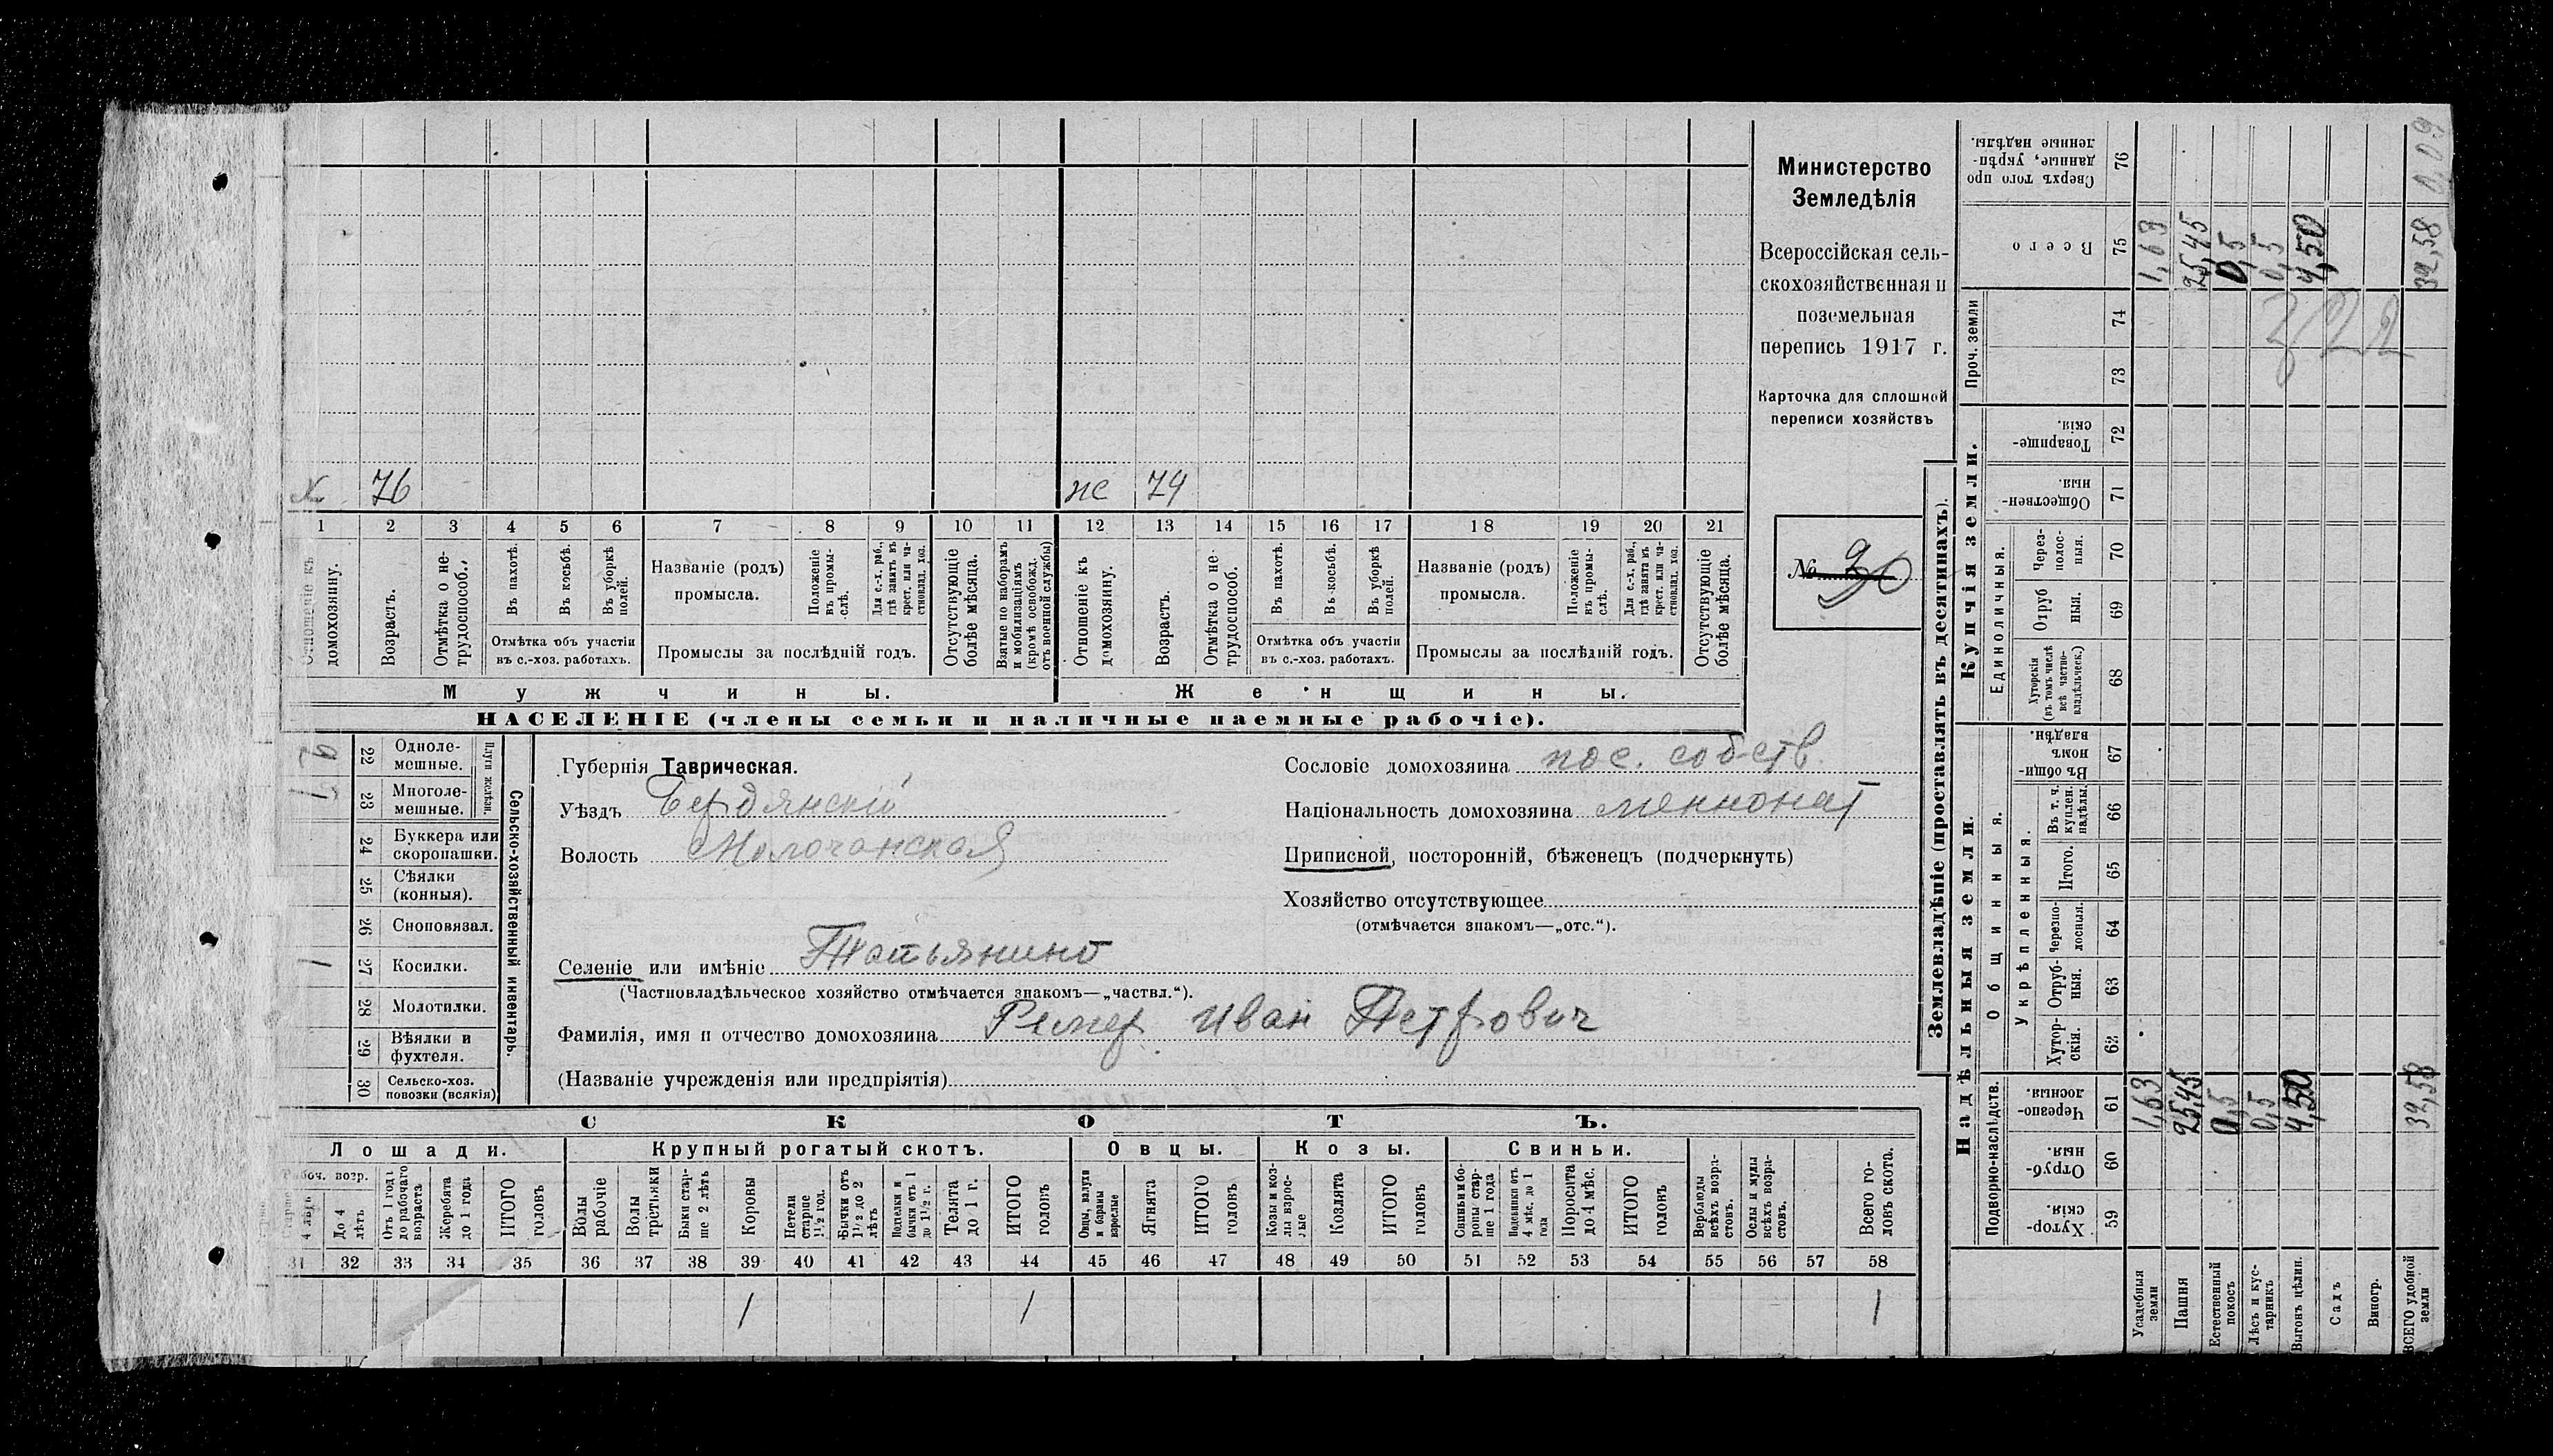 Министерство
Земледѣлія
Всероссійская сель-
скохозяйственная и
поземельная
перепись 1917 г.
Карточка для сплошной
переписи хозяйствъ
№ 30
76
же 74
1 2 3 4 5 6 7 8 9 10 11 12 13 14 15 16 17 18 19 20 21
Отношеніе къ домохозяину.
Возрастъ.
Отмѣтка о не-трудоспособ.
Въ пахотѣ.
Въ косьбѣ.
Въ уборкѣ полей.
Отмѣтка объ участіи
въ с.-хоз. работахъ.
Названіе (родъ)
промысла.
Положеніе въ промы-слѣ.
Для с.-х. раб., гдѣ занятъ въ крест. или ча-стновлад. хоз.
Промыслы за послѣдній годъ.
Отсутствующіе болѣе мѣсяца.
Взятые по наборамъ и мобилизаціямъ (кромѣ освобожд. отъ военной службы)
Отношеніе къ домохозяину.
Возрастъ.
Отмѣтка о не-трудоспособ.
Въ пахотѣ.
Въ косьбѣ.
Въ уборкѣ полей.
Отмѣтка объ участіи
въ с.-хоз. работахъ.
Названіе (родъ)
промысла.
Положеніе въ промы-слѣ.
Для с.-х. раб., гдѣ занята въ крест. или ча-стновлад. хоз.
Промыслы за послѣдній годъ.
Отсутствующіе болѣе мѣсяца.
Мужчины. Женщины.
НАСЕЛЕНІЕ (члены семьи и наличные наемные рабочіе).
Сельско-хозяйственный инвентарь.
Плуги желѣзн.
22 Одноле-мешные.
23 Многоле-мешные. 1
24 Буккера или скоропашки.
25 Сѣялки (конныя).
26 Сноповязал.
27 Косилки. 1
28 Молотилки.
29 Вѣялки и фухтеля.
30 Сельско-хоз. повозки (всякія)
Губернія Таврическая.
Уѣздъ Бердянскій
Волость Молочанская
Сословіе домохозяина пос. собств.
Національность домохозяина меннонит
Приписной, посторонній, бѣженецъ (подчеркнуть)
Хозяйство отсутствующее
(отмѣчается знакомъ—„отс.“).
Селеніе или имѣніе Татьянино
(Частновладѣльческое хозяйство отмѣчается знакомъ—„частвл.“).
Фамилія, имя и отчество домохозяина Ремер Иван Петрович
(Названіе учрежденія или предпріятія)
СКОТЪ.
Лошади. Крупный рогатый скотъ. Овцы. Козы. Свиньи.
Рабоч. возр.
Старше 4 лѣтъ
До 4 лѣтъ
Отъ 1 года до рабочаго возраста
Жеребята до 1 года
ИТОГО головъ
Волы рабочіе
Волы третьяки
Быки стар-ше 2 лѣтъ
Коровы
Нетели старше 1 1/2 год.
Бычки отъ 1 1/2 до 2 лѣтъ
Подтелки и бычки отъ 1 до 1 1/2 г.
Телята до 1 г.
ИТОГО головъ
Овцы, валухи и бараны взрослые
Ягнята
ИТОГО головъ
Козы и коз-лы взрос-лые
Козлята
ИТОГО головъ
Свиньи и бо-ровы стар-ше 1 года
Подсвинки отъ 4 мѣс. до 1 года
Поросята до 4 мѣс.
ИТОГО головъ
Верблюды всѣхъ возра-стовъ.
Ослы и мулы всѣхъ возра-стовъ.
Всего го-ловъ скота.
31 32 33 34 35 36 37 38 39 40 41 42 43 44 45 46 47 48 49 50 51 52 53 54 55 56 57 58
1 1 1
Землевладѣніе (проставлять въ десятинахъ).
Надѣльныя земли. Купчія земли. Проч. земли
Подворно-наслѣдств.
Общинныя.
Укрѣпленныя.
Единоличныя.
Хутор-скія. 59
Отруб-ныя. 60
Черезпо-лосныя. 61
Хутор-скія. 62
Отруб-ныя. 63
Черезпо-лосныя. 64
Итого. 65
Въ т. ч. куплен. надѣлы. 66
Въ общи-номъ владѣн. 67
Хуторскія (въ томъ числѣ всѣ частно-владѣльческ.) 68
Отруб ныя. 69
Через-полос-ныя. 70
Обществен-ныя. 71
Товарище-скія. 72
73
74
Всего 75
Сверхъ того про данные, укрѣп-ленные надѣлы. 76
Усадебныя земли 1,63 1,63
Пашня 25,45 25,45
Естественный покосъ 0,5 0,5
Лѣсъ и кус-тарникъ 0,5 0,5
Выгонъ цѣлин. 4,50 4,50
Садъ
Виногр.
ВСЕГО удобной земли 32,58 32,58 0,09